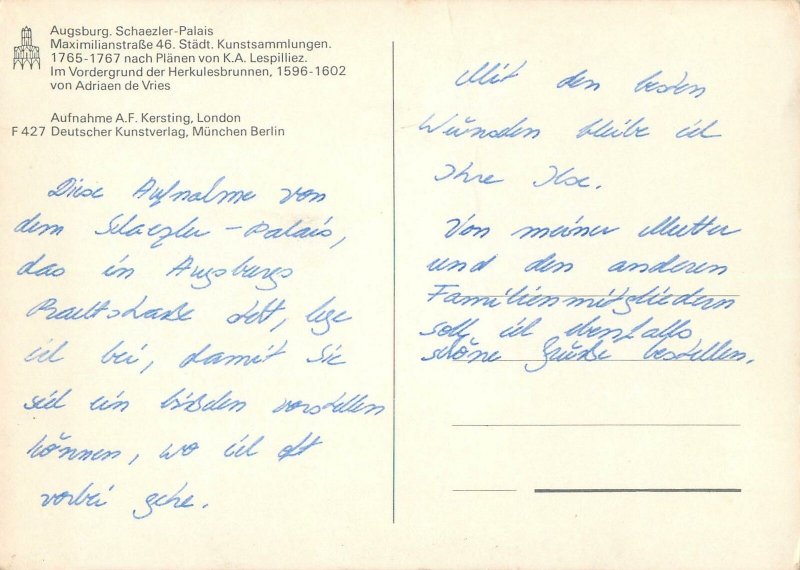 Augsburg. Schaezler-Palais
Maximilianstraße 46. Städt. Kunstsammlungen.
1765-1767 nach Plänen von K.A. Lespilliez.
Im Vordergrund der Herkulesbrunnen, 1596-1602
von Adriaen de Vries
Aufnahme A.F. Kersting, London
F 427 Deutscher Kunstverlag, München Berlin
Diese Aufnahme von
dem Schaezler-Palais,
das in Augsburgs
Prachtstraße steht, lege
ich bei, damit Sie
sich ein bißchen vorstellen
können, wo ich oft
vorbei gehe.
Mit den besten
Wünschen bleibe ich
Ihre Ilse.
Von meiner Mutter
und den anderen
Familienmitgliedern
soll ich ebenfalls
schöne Grüße bestellen.